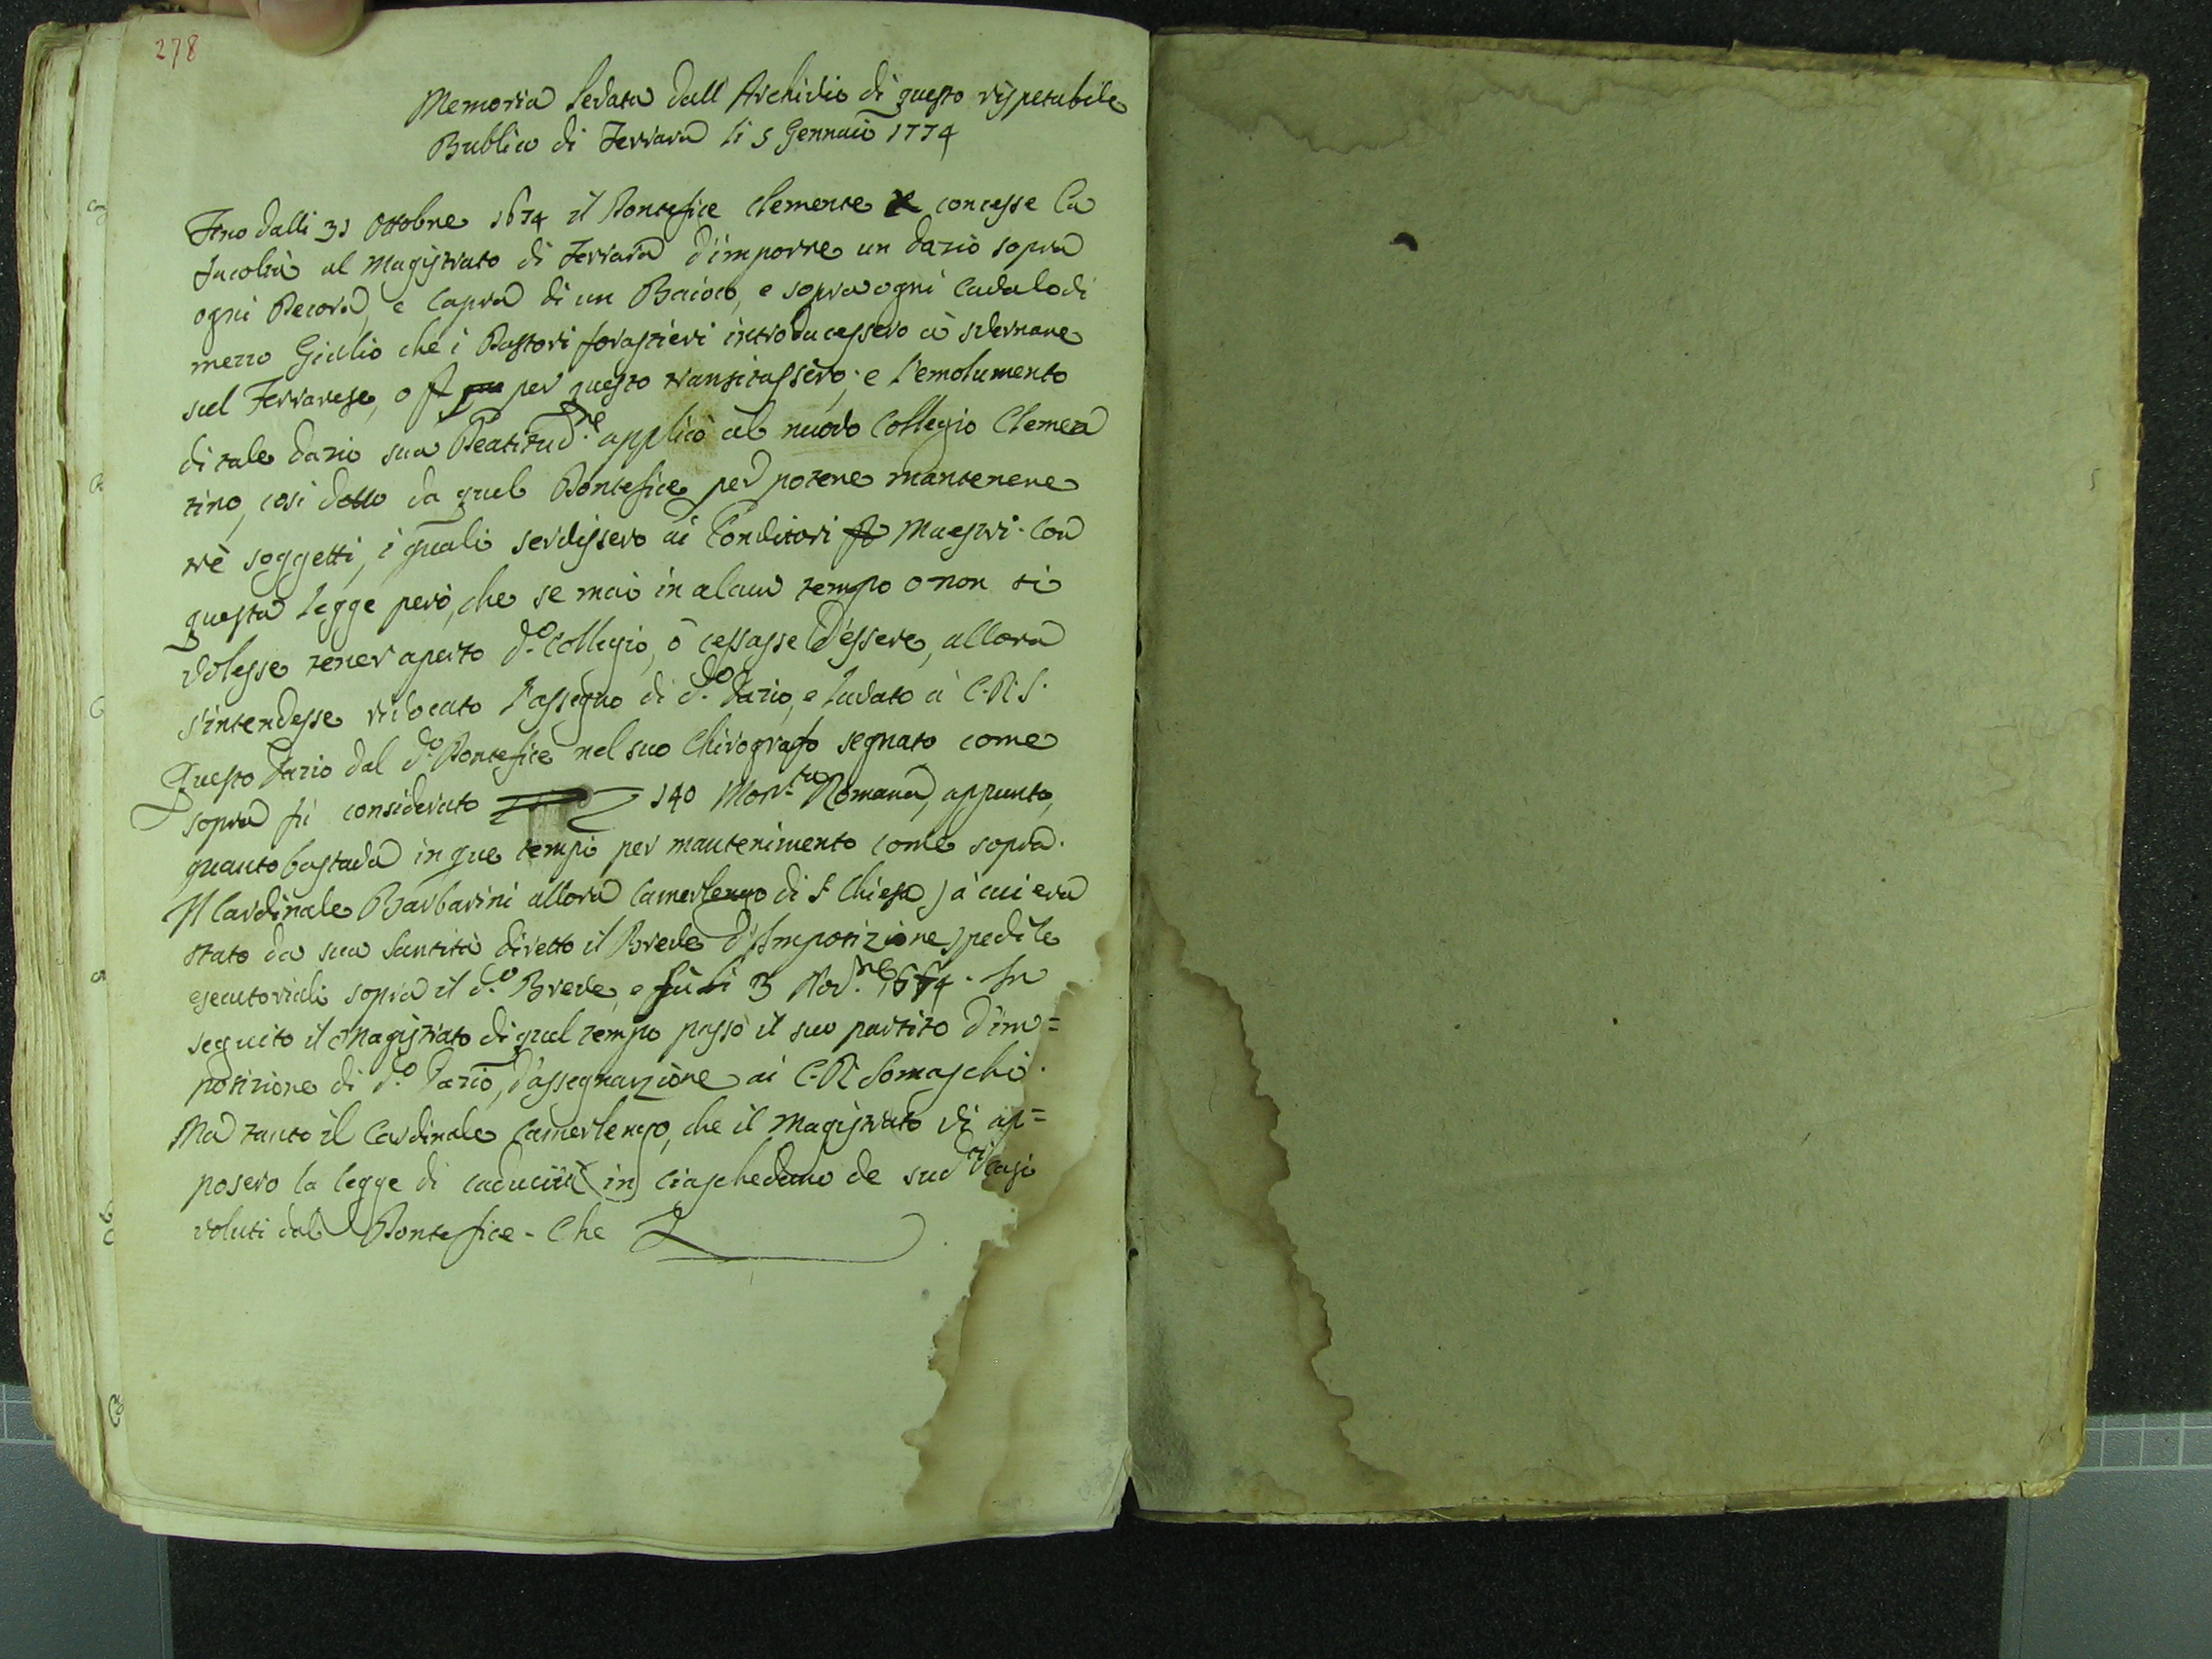 278
Memoria levata dall'Archivio di questo rispetabile
Publico di Ferrara li 5 Gennaio 1774
Fino dalli 31 Ottobre 1674 il Pontefice Clemente X concesse la
facoltà al Magistrato di Ferrara d'imporre un dazio sopra
ogni Pecora, e Capra di un Baioco, e sopra ogni Cavalo di
mezzo Giulio che i Pastori forastieri introducessero à svernare
sul Ferrarese, o per questo transitassero; e l'emolumento
di tale dazio sua Beatitud.ne applicò al nuovo Collegio Clemen
tino, così detto da quel Pontefice per potere mantenere
trè soggetti, i quali servissero ai Conditori Maestri. Con
questa legge però, che se mai in alcun tempo o non si
volesse tener aperto d.o Collegio, ò cessasse d'essere, allora
s'intendesse rivocato l'assegno di d.o Dazio, e ludato à C.R.S.
Questo Dazio dal d.o Pontefice nel suo Chirografo segnato come
sopra fù considerato 140 Mon.ta Romana, appunto,
quanto bastava in que tempi per mantenimento come sopra.
Il Cardinale Barbarini allora Camerlengo di S. Chiesa, à cui era
stato da sua Santità diretto il Breve d'Imposizione spedì le
esecutoriali sopra il d.o Breve, e fù li 3 Nov.re 1674. In
seguito il Magistrato di quel tempo passò il suo partito d'im=
posizione di d.o Dazio, d'assegnazione ai C.R. Somaschi.
Ma tanto il Cardinale Camerlengo, che il Magistrato vi ap=
posero la legge di caducità in ciascheduno de sud.ti casi
voluti dal Pontefice. Che